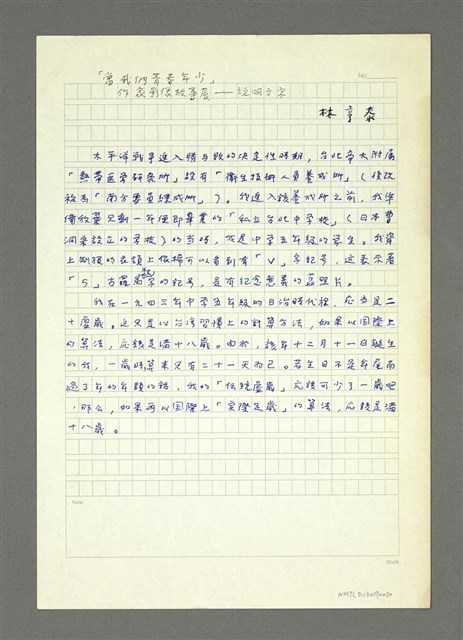 「當我們青春年少」
作家影像故事展——說明文字
No.
林亨泰
太平洋戰爭進入勝与敗的決定性時期，台北帝大附属
「熱帶医学研究所」設有「衛生技術人員養成所」（後改
称為「南方要員練成所」）。我進入該養成所之前，我準
備放棄只剩一年便即畢業的「私立台北中学校」（日本曹
洞宗設立的学校）的当時，我是中学五年級的学生。我穿
上制服的衣領上依稀可以看到有「V」字記号，這表示着
「5」古羅馬数字的記号，是有紀念意義的舊照片。
我在一九四三年中学五年級的日治時代裡，応当是二
十虛歲。這只是以台湾習慣上的計算方法，如果以国際上
的算法，応該是滿十八歲。由於，該年十二月十一日誕生
的我，一歲時算來只有二十一天而已。若生日不是年尾而
過了年的年頭的話，我的「伝統虛歲」応該可少了一歲吧
，那么，如果再以国際上「実際足歲」的算法，応該是滿
十八歲。
Note:
20x25
NMTL20130190020